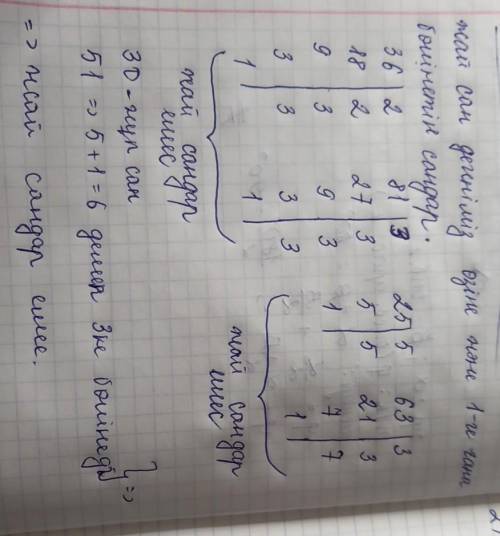 жай сан дегеніміз өзіне және 1-ге ғана
бөлінетін сандар.
36 | 2   81 | 3   25 | 5   63 | 3
18 | 2   27 | 3   5 | 5   21 | 3
9 | 3   9 | 3   1 |   7 | 7
3 | 3   3 | 3   1 |
1 |   1 |
жай сандар
емес
жай сандар
емес
30 - жұп сан
51 => 5+1=6 демек 3ке бөлінеді } =>
=> жай сандар емес.